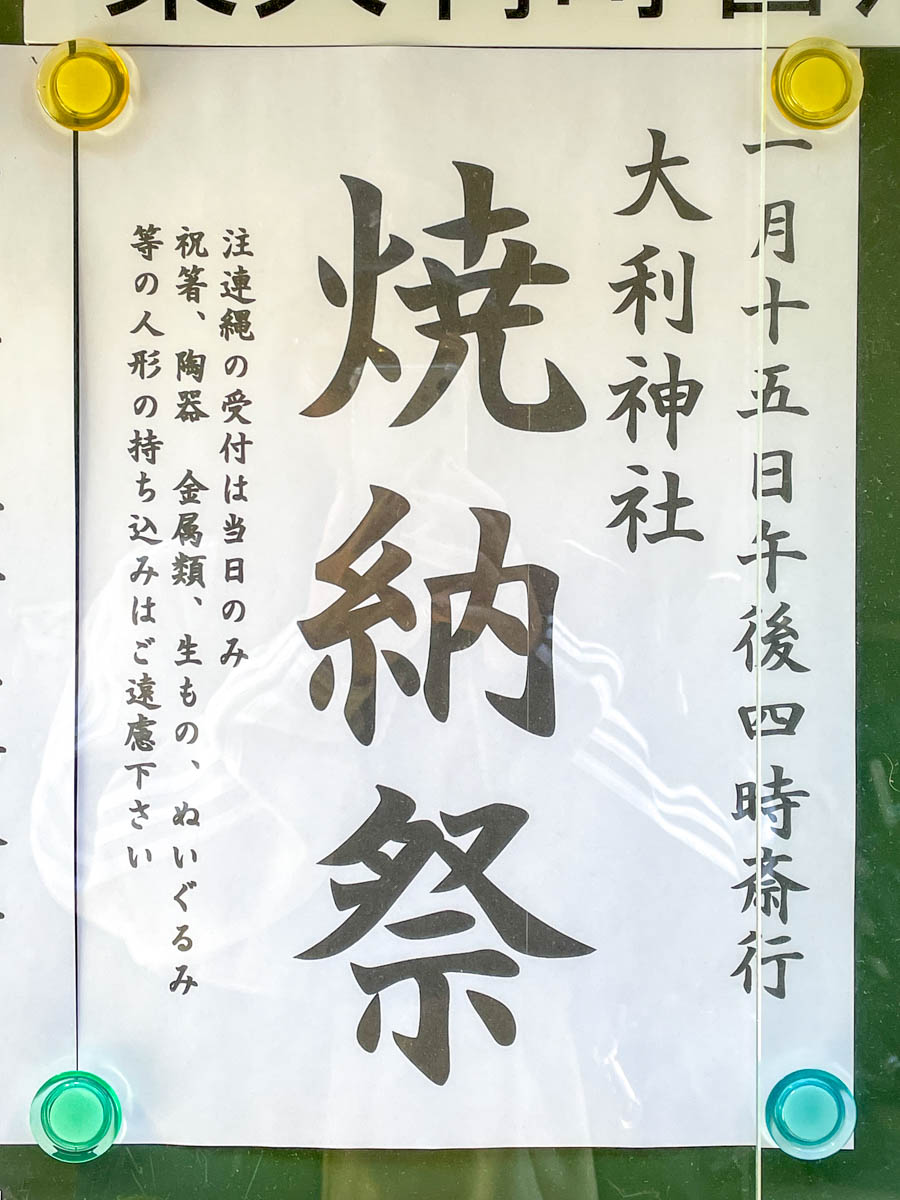 一月十五日午後四時斎行
大利神社
焼納祭
注連縄の受付は当日のみ
祝箸、陶器　金属類、生もの、ぬいぐるみ
等の人形の持ち込みはご遠慮下さい